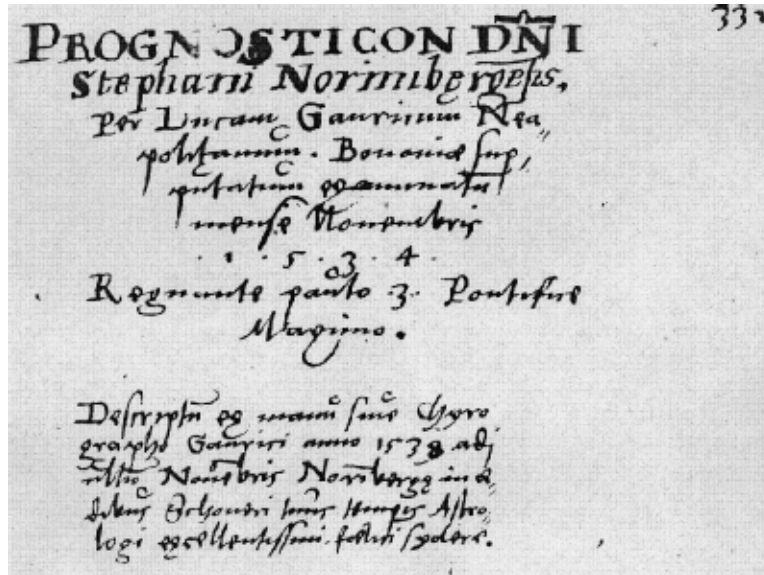 PROGNOSTICON DÑI
Stephani Norimbergẽsis.
Per Lucam Gauricum Nea„
politanum. Bononiæ sup„
putatum examinatũ
mense Nouembris
. 1 . 5 . 3 . 4 .
Regnante paulo .3. Pontifice
Maximo.
Descriptũ ex manu siue Chyro
grapho Gaurici anno 1538 adj
Nouẽbris Norĩbergę in æ„
dibus Schoneri Astro„
logi excellentissimi fœlici sydere.